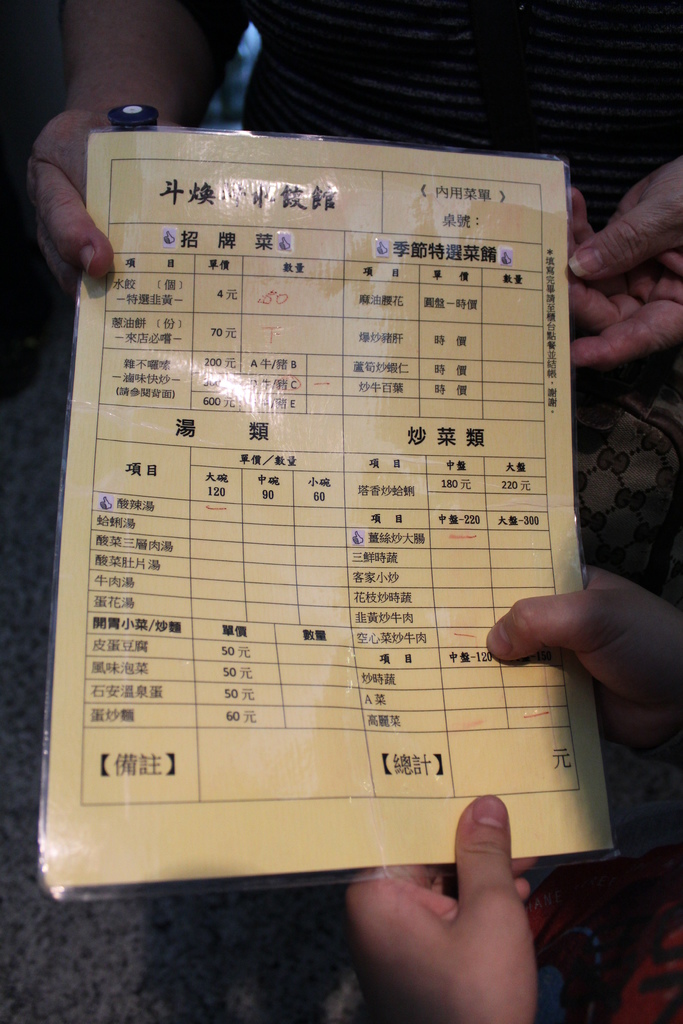 斗煥 水餃館
《 內用菜單 》
桌號：
招牌菜
項目 單價 數量
水餃 〔個〕
－特選韭黃－
4 元
50
蔥油餅〔份〕
－來店必嚐－
70 元
下
雜不囉嗦
－滷味快炒－
(請參閱背面)
200 元 A 牛/豬 B
300 /豬 C 一
600 元 /豬 E
季節特選菜餚
項目 單價 數量
麻油腰花 圓盤－時價
爆炒豬肝 時價
蘆筍炒蝦仁 時價
炒牛百葉 時價
＊填寫完畢請至櫃台點餐並結帳，謝謝。
湯類
項目 單價／數量
大碗 120 中碗 90 小碗 60
酸辣湯 一
蛤蜊湯
酸菜三層肉湯
酸菜肚片湯
牛肉湯
蛋花湯
開胃小菜/炒麵 單價 數量
皮蛋豆腐 50 元
風味泡菜 50 元
石安溫泉蛋 50 元
蛋炒麵 60 元
炒菜類
項目 中盤 大盤
塔香炒蛤蜊 180 元 220 元
項目 中盤-220 大盤-300
薑絲炒大腸 一
三鮮時蔬
客家小炒
花枝炒時蔬
韭黃炒牛肉
空心菜炒牛肉 一
項目 中盤-120 150
炒時蔬
A 菜
高麗菜 一 一
【備註】
【總計】 元